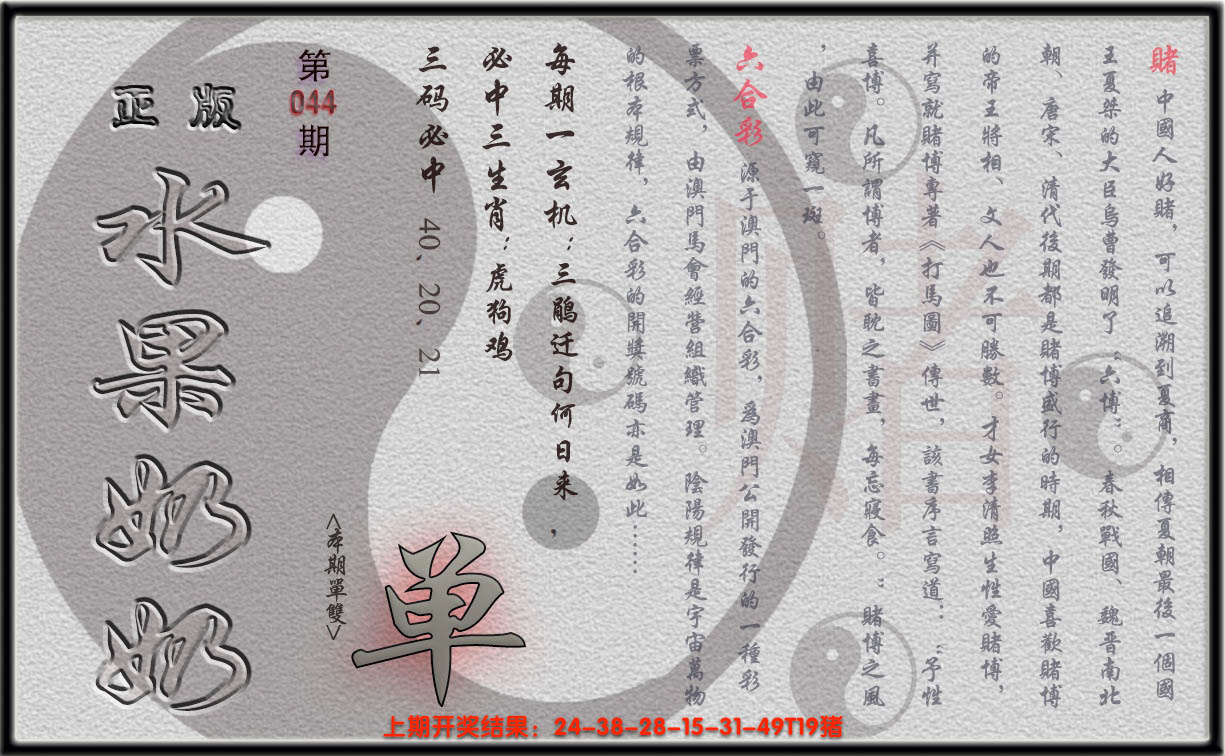 賭 中國人好賭，可以追溯到夏商，相傳夏朝最後一個國
王夏桀的大臣烏曹發明了“六博”。春秋戰國、魏晉南北
朝、唐宋、清代後期都是賭博盛行的時期，中國喜歡賭博
的帝王將相、文人也不可勝數。才女李清照生性愛賭博，
并寫就賭博專著《打馬圖》傳世，該書序言寫道：“予性
喜博。凡所謂博者，皆耽之書畫，每忘寢食。”賭博之風
，由此可窺一斑。
六合彩 源于澳門的六合彩，爲澳門公開發行的一種彩
票方式，由澳門馬會經營組織管理。陰陽規律是宇宙萬物
的根本規律，六合彩的開獎號碼亦是如此……
每期一玄机：三鹃迁句何日来，
必中三生肖：虎狗鸡
三码必中 40、20、21
第
044
期
<本期單雙>
单
正版
水果奶奶
赌
上期开奖结果：24-38-28-15-31-49T19猪